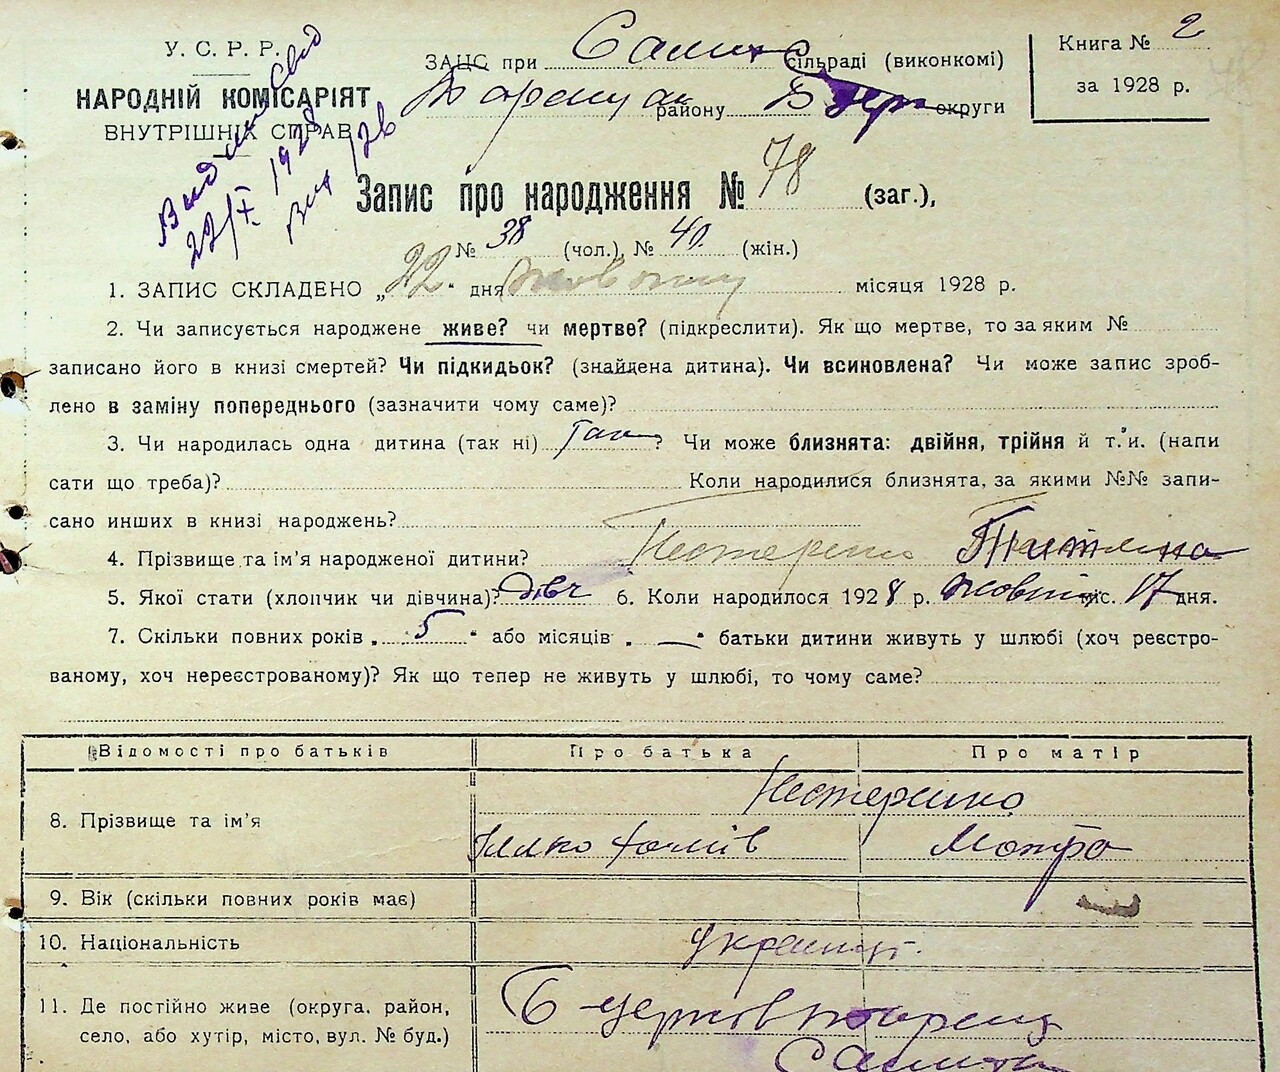 У. С. Р. Р.
НАРОДНІЙ КОМІСАРІЯТ
ВНУТРІШНІХ СПРАВ
22/X 1928
ЗАЦС при сільраді (виконкомі)
району Б округи
Книга № 2
за 1928 р.
Запис про народження № 78 (заг.),
№ 38 (чол.), № 40 (жін.)
1. ЗАПИС СКЛАДЕНО „22“ дня жовтня місяця 1928 р.
2. Чи записується народжене живе? чи мертве? (підкреслити). Як що мертве, то за яким №
записано його в книзі смертей? Чи підкидьок? (знайдена дитина). Чи всиновлена? Чи може запис зроб-
лено в заміну попереднього (зазначити чому саме)?
3. Чи народилась одна дитина (так ні) так? Чи може близнята: двійня, трійня й т. и. (напи
сати що треба)? Коли народилися близнята, за якими №№ запи-
сано инших в книзі народжень?
4. Прізвище та ім'я народженої дитини? Нестеренко
5. Якої стати (хлопчик чи дівчина)? дівч 6. Коли народилося 1928 р. жовтня міс. 17 дня.
7. Скільки повних років „5“ або місяців „—“ батьки дитини живуть у шлюбі (хоч реєстро-
ваному, хоч нереєстрованому)? Як що тепер не живуть у шлюбі, то чому саме?
Відомості про батьків Про батька Про матір
Нестеренко
8. Прізвище та ім'я
Мотря
9. Вік (скільки повних років має)
10. Національність україн
11. Де постійно живе (округа, район,
село, або хутір, місто, вул. № буд.)